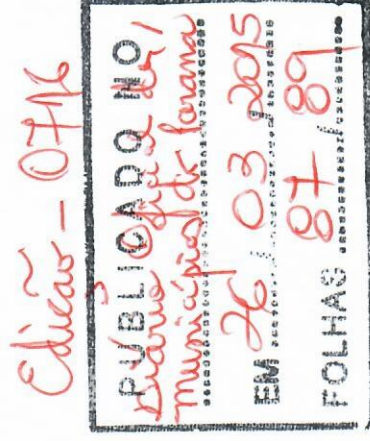 Edição - 0716
PUBLICADO NO
Diário Oficial dos
municípios do Paraná
EM 26 / 03 2015
FOLHAS 87 / 89